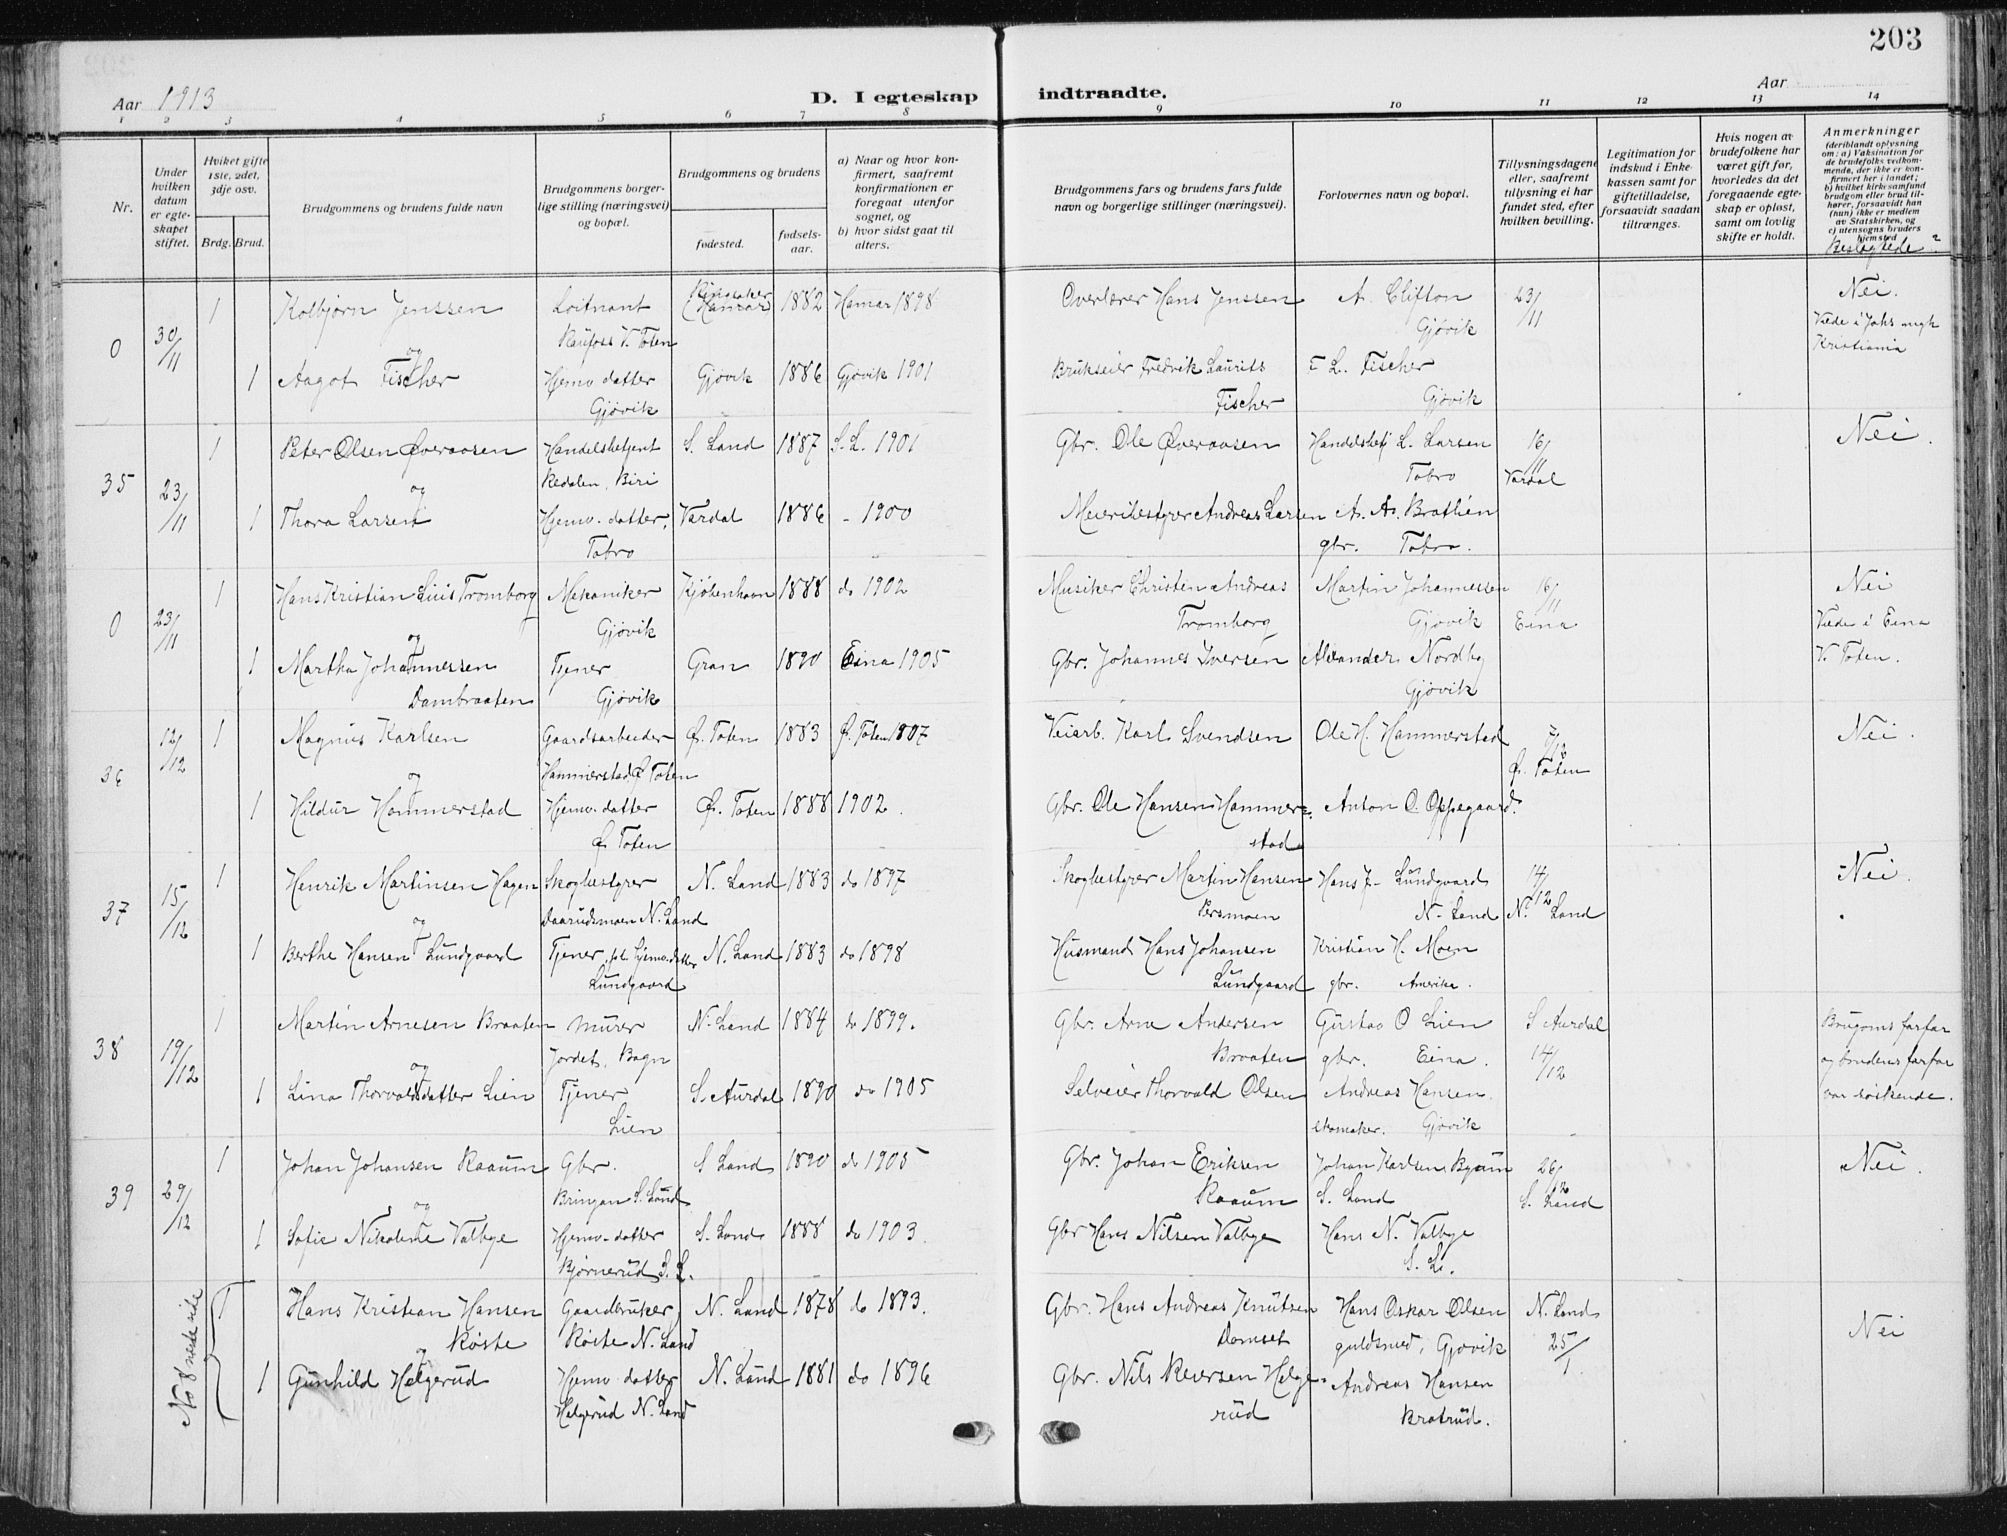 203
Aar 1913
D. I egteskap indtraadte.
Aar
1 2 3 4 5 6 7 8 9 10 11 12 13 14
Nr.
Under hvilken datum er egteskapet stiftet.
Hvilket gifte 1ste, 2det, 3dje osv.
Brdg. Brud.
Brudgommens og brudens fulde navn
Brudgommens borgerlige stilling (næringsvei) og bopæl.
Brudgommens og brudens
fødested.
fødselsaar.
a) Naar og hvor konfirmert, saafremt konfirmationen er foregaat utenfor sognet, og
b) hvor sidst gaat til alters.
Brudgommens fars og brudens fars fulde navn og borgerlige stillinger (næringsvei).
Forlovernes navn og bopæl.
Tillysningsdagene eller, saafremt tillysning ei har fundet sted, efter hvilken bevilling.
Legitimation for indskud i Enkekassen samt for giftetilladelse, forsaavidt saadan tiltrænges.
Hvis nogen av brudefolkene har været gift før, hvorledes da det foregaaende egteskap er opløst, samt om lovlig skifte er holdt.
Anmerkninger (deriblandt oplysning om: a) Vaksination for de brudefolks vedkommende, der ikke er konfirmert her i landet; b) hvilket kirkesamfund brudgom eller brud tilhører, forsaavidt han (hun) ikke er medlem av Statskirken, og c) utensogns bruders hjemsted
Beslægtede?
0 30/11 1 Kolbjørn Jenssen Loitnant Ringsaker (Hamar) 1882 Hamar 1898 Overlærer Hans Jenssen A. Clifton 23/11 Nei.
Raufoss V. Toten Gjøvik Viede i Johs mgh
og Kristiania
1 Aagot Fischer Hjemv datter Gjøvik 1886 Gjøvik 1901 Brukseier Fredrik Laurits F L. Fischer
Gjøvik Fischer Gjøvik
35 23/11 1 Peter Olsen Øveraasen Handelsbetjent S. Land 1887 S. L. 1901 Gbr. Ole Øveraasen Handelsbetj L. Larsen 16/11 Nei.
Redalen, Biri Tobro Vardal
og
1 Thora Larsen Hjemv. datter, Vardal 1886 - 1900 Meieribestyrer Andreas Larsen A. A. Brathien
Tobro gbr. Tobro.
0 23/11 1 Hans Kristian Luis Tromborg Mekaniker Kjøbenhavn 1888 do 1902 Musiker Christen Andreas Martin Johannessen 16/11 Nei
Gjøvik Tromborg Gjøvik Eina Viede i Eina
og
1 Martha Johannessen Tjener Gran 1890 Eina 1905 Gbr. Johannes Iversen Alexander Nordby V. Toten.
Dambraaten Gjøvik Gjøvik
36 12/12 1 Magnus Karlsen Gaardsarbeider Ø. Toten 1883 Ø. Toten 1897 Veiarb. Karl Svendsen Ole H. Hammerstad 7/12 Nei.
Hammerstad Ø Toten Ø. Toten
og
1 Hildur Hammerstad Hjemv. datter Ø. Toten 1888 1902. Gbr. Ole Hansen Hammer- Anton O. Oppegaard.
Ø Toten stad
37 15/12 1 Henrik Martinsen Hagen Skogbestyrer N. Land 1883 do 1897 Skogbestyrer Martin Hansen Hans J- Lundgaard 14/12 Nei.
Daarudsmoen N. Land Persmoen N- Land N. Land
og
1 Berthe Hansen Lundgaard Tjener, hjemv. datter N. Land 1883 do 1898 Husmand Hans Johansen Kristian H. Moen
Lundgaard Lundgaard gbr. Amerika.
38 19/12 1 Martin Arnesen Braaten Murer N. Land 1884 do 1899. Gbr. Arne Andersen Gustav O Lien S Aurdal Brugoms farfar
Jordet, Bagn Braaten gbr. Eina. 14/12 og brudens farfar
og
1 Lina Thorvaldsdatter Lien Tjener S. Aurdal 1890 do 1905 Selveier Thorvald Olsen Andreas Hansen. var søskende.
Lien skomaker. Gjøvik
39 29/12 1 Johan Johansen Raaum Gbr. S Land 1890 do 1905 Gbr. Johan Eriksen Johan Karlsen Byaum 26/12 Nei.
Bringan S. Land Raaum S. Land S. Land
og
1 Sofie Nikoline Valbye Hjemv-datter S. Land 1888 do 1903. Gbr Hans Nilsen Valbye Hans N. Valbye
Bjørnerud S. L. S. L.
No 8 neste side 1 Hans Kristian Hansen Gaardbruker N. Land 1878 do 1893. Gbr. Hans Andreas Knutsen Hans Oskar Olsen N. Land Nei
Røste Røste N. Land Domset guldsmed, Gjøvik 25/1
og
1 Gunhild Helgerud Hjemv datter N. Land 1881 do 1896 Gbr. Nils Reiersen Helge- Andreas Hansen
Helgerud N. Land rud Bratrud.